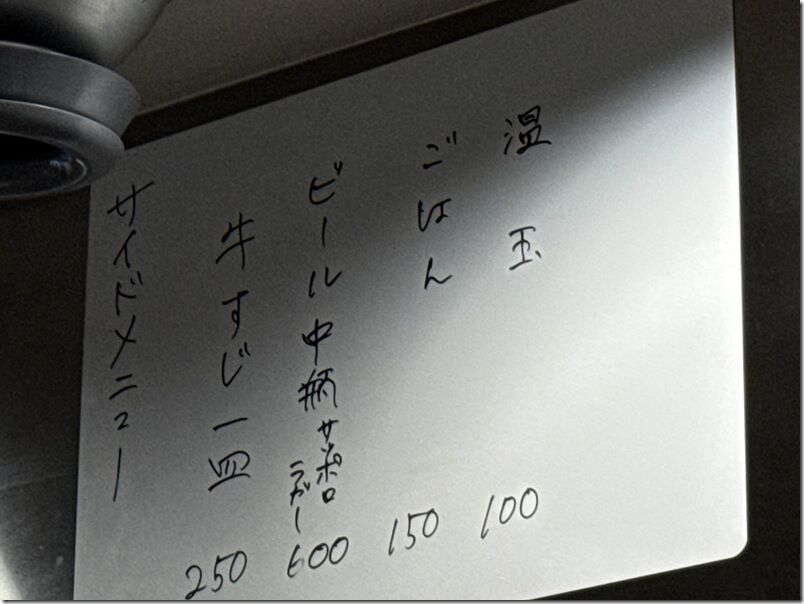 サイドメニュー
牛すじ一皿 250
ビール中柄 サッポロ ラガー 600
ごはん 150
温玉 100